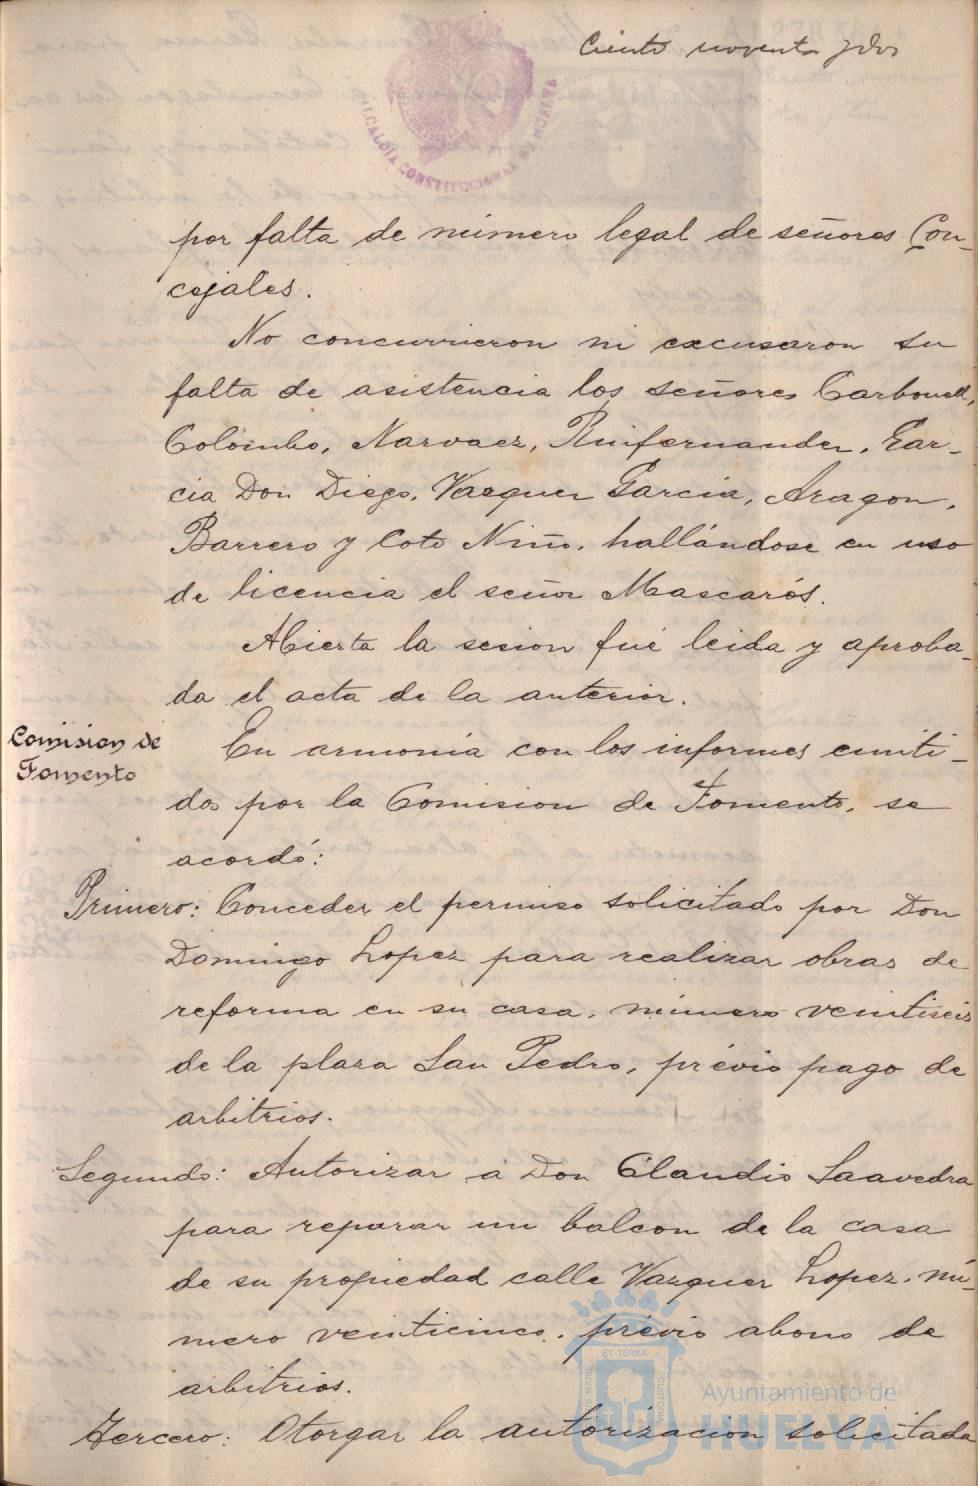 Ciento noventa y dos
ALCALDIA CONSTITUCIONAL DE HUELVA
por falta de número legal de señores Con-
cejales.
No concurrieron ni excusaron su
falta de asistencia los señores Carbonell,
Colombo, Narvaez, Ruifernandez, Gar-
cia Don Diego, Vazquez Garcia, Aragon,
Barrero y Coto Niño, hallándose en uso
de licencia el señor Mascarós.
Abierta la sesion fué leida y aproba-
da el acta de la anterior.
Comision de
Fomento
En armonía con los informes emiti-
dos por la Comision de Fomento, se
acordó:
Primero: Conceder el permiso solicitado por Don
Domingo Lopez para realizar obras de
reforma en su casa, número veintiseis
de la plaza San Pedro, prévio pago de
arbitrios.
Segundo: Autorizar á Don Claudio Saavedra
para reparar un balcon de la casa
de su propiedad calle Vazquez Lopez, nú-
mero veinticinco, prévio abono de
arbitrios.
Tercero: Otorgar la autorizacion solicitada
ET TERRÆ
PORTUS MARIS
CUSTODIA
Ayuntamiento de
HUELVA